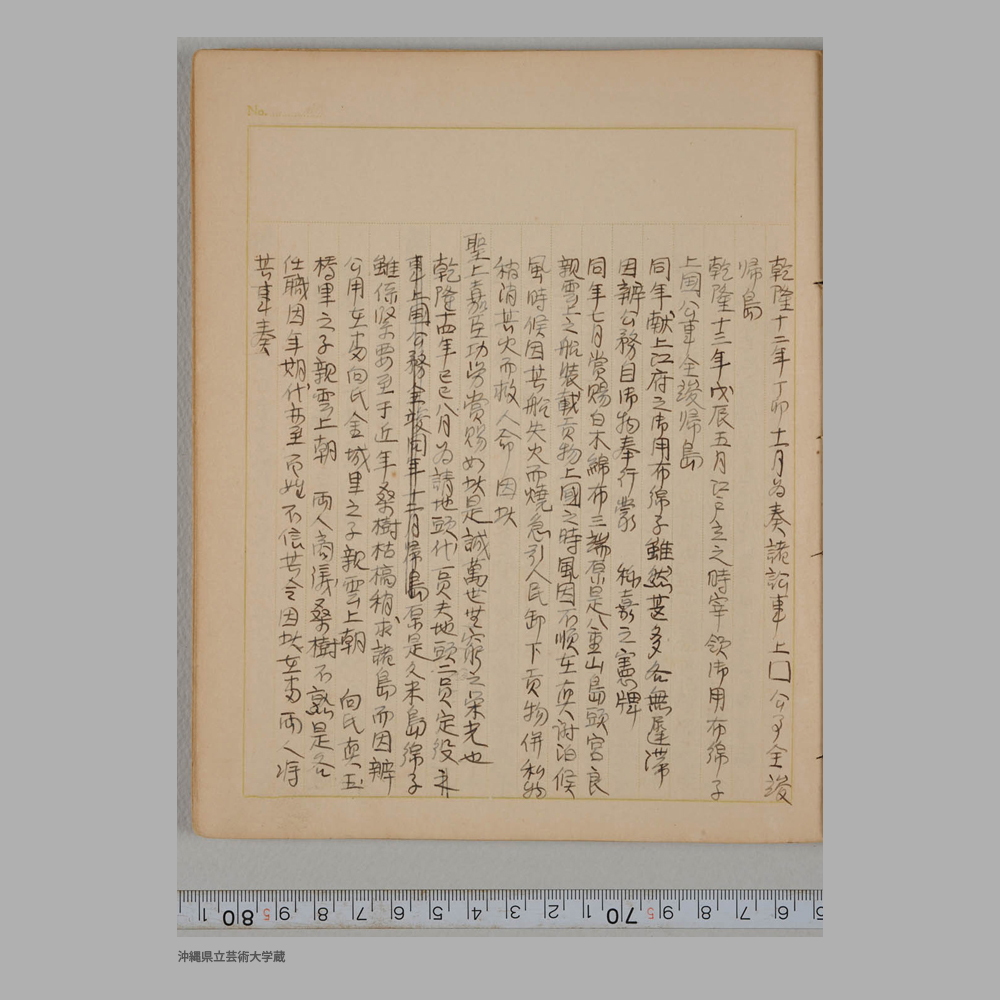 乾隆十二年丁卯十一月為奏諸訟事上囗公事全竣
帰島
乾隆十三年戊辰五月江戸立之時宰領御用布綿子
上国公事全竣帰島
同年献上江府之御用布綿子雖然甚多各無遅滞
因辦公務自御物奉行蒙 称嘉之憲牌
同年七月賞賜白木綿布三端原是八重山島頭宮良
親雲上之船装載貢物上国之時風因不順在真謝泊候
風時候因其船失火而焼急引人民卸下貢物併私物
稍消其火而救人命因玆
聖上嘉臣功労賞賜如玆是誠萬世無窮之栄光也
乾隆十四年己巳八月為請地頭代一員夫地頭二員定役未
事上国公務全竣同年十二月帰島原是久米島綿子
雖係緊要至于近年桑樹枯槁稍求諸島而因辦
公用在番向氏金城里之子親雲上朝 向氏真玉
橋里之子親雲上朝 両人商議桑樹不熟是各
仕職因年期代亦至百姓不信其令因玆在番両人将
其事奏
No.
80 9 8 7 6 5 4 3 2 1 70 9 8 7 6
沖縄県立芸術大学蔵